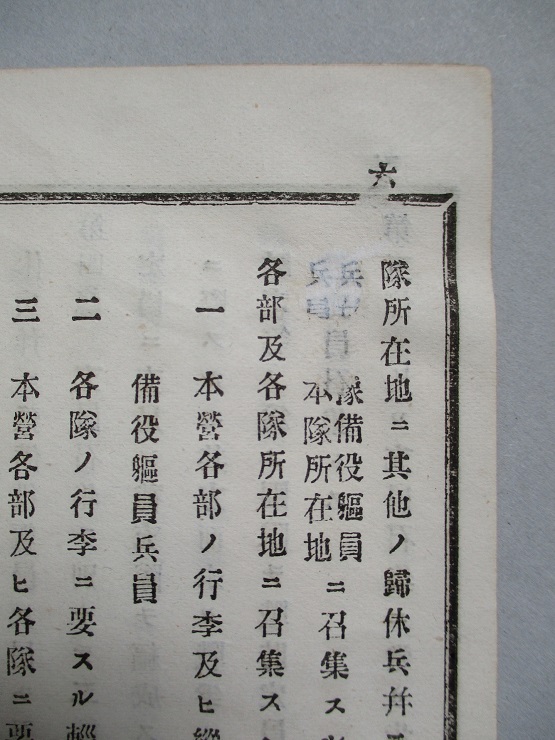 六
隊所在地ニ其他ノ歸休兵幷
隊備役軀員
本隊所在地ニ召集ス
各部及各隊所在地ニ召集ス
一 本營各部ノ行李及ヒ
備役軀員兵員
二 各隊ノ行李ニ要スル輕
三 本營各部及ヒ各隊ニ要